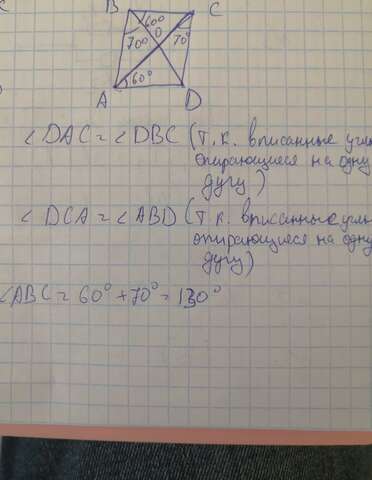 B C
60° O
70° 70°
60°
A D
∠DAC = ∠DBC (т.к. вписанные
опирающиеся на одну
дугу)
∠DCA = ∠ABD (т.к. вписанные
опирающиеся на одну
дугу)
∠ABC = 60° + 70° = 130°